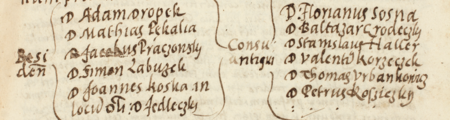 D Adam Dropek
D Mathias Pekalia
Resi D Jacobus Praczonsky
deñ D Simon Labuzek
D Joannes koska in
D Jedleczky
Consu
antiqui
D Florianus Sospa
D Baltazar Crodeczky
D Stanislaus Haller
D Valento Korzeczek
D Thomas Vrbankowicz
D Petrus